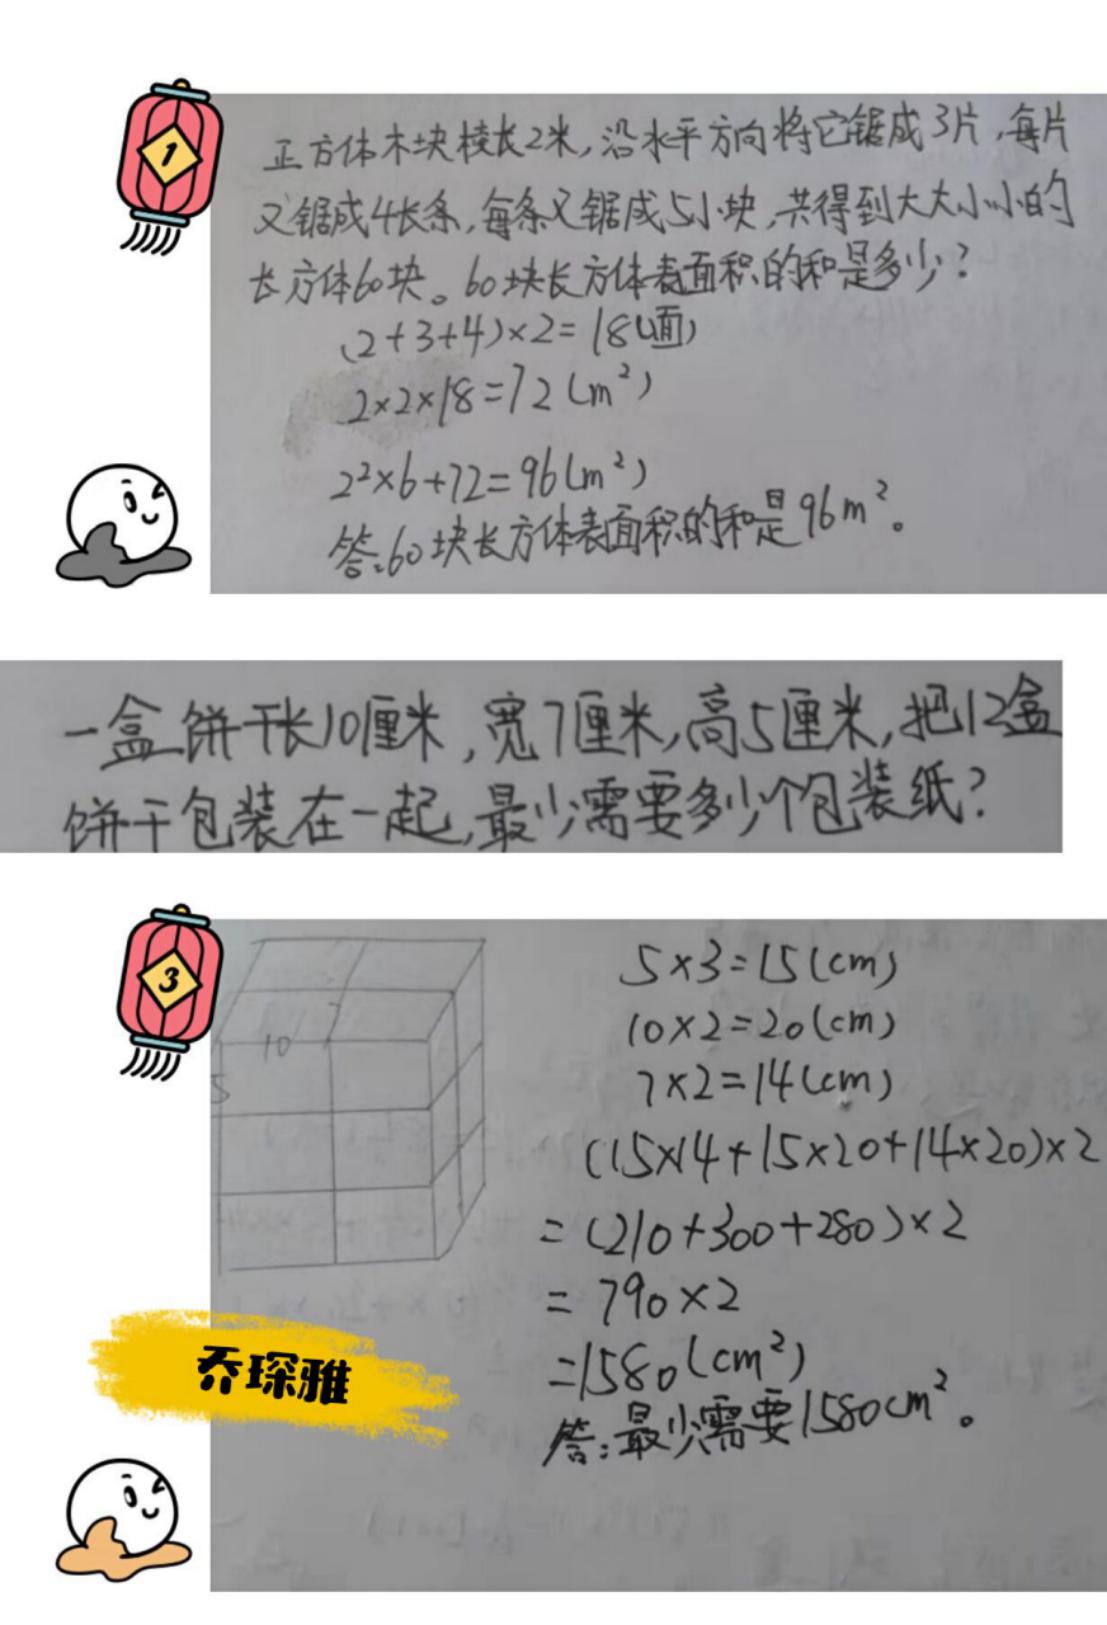 1
正方体木块棱长2米,沿水平方向将它锯成3片,每片
又锯成4长条,每条又锯成5小块,共得到大大小小的
长方体60块。60块长方体表面积的和是多少?
(2+3+4)×2=18(面)
2×2×18=72(m²)
2²×6+72=96(m²)
答:60块长方体表面积的和是96m²。
一盒饼干长10厘米,宽7厘米,高5厘米,把12盒
饼干包装在一起,最少需要多少个包装纸?
3
10
7
5
5×3=15(cm)
10×2=20(cm)
7×2=14(cm)
(15×14+15×20+14×20)×2
=(210+300+280)×2
=790×2
=1580(cm²)
答:最少需要1580cm²。
乔琛雅